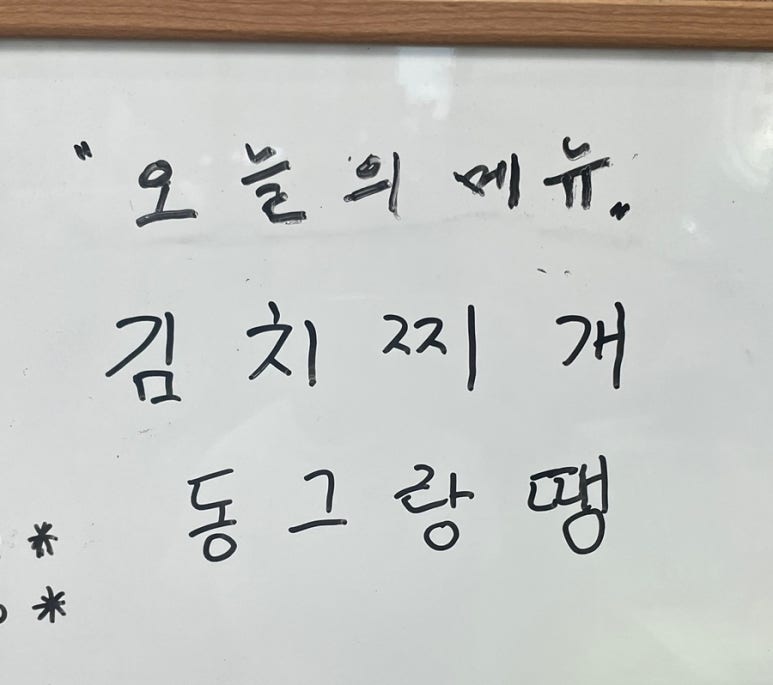 "오늘의 메뉴"
김치찌개
동그랑땡
*
*